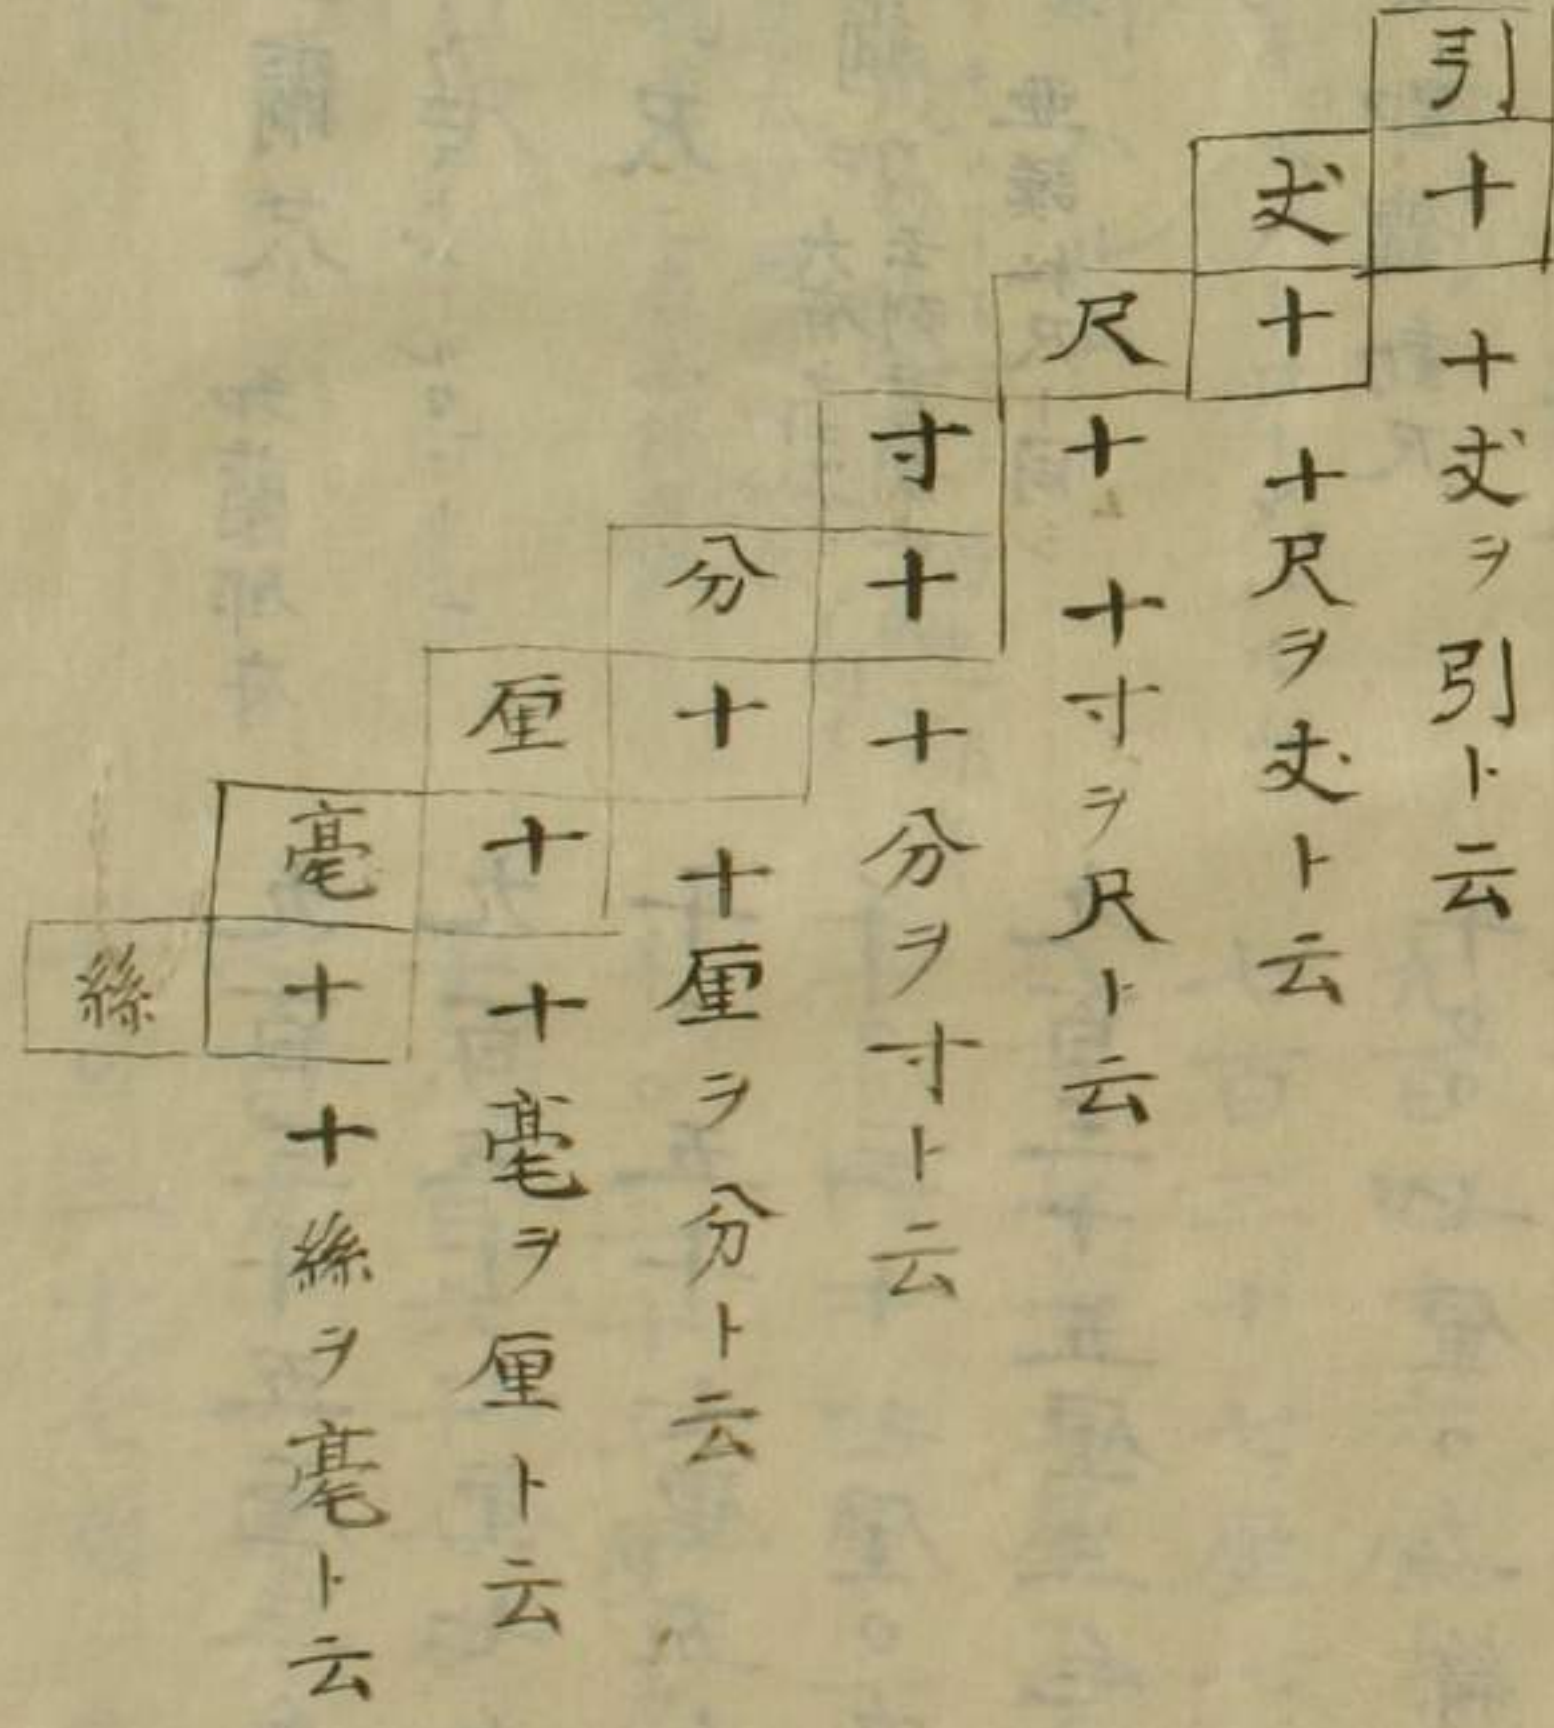 引十 十丈ヲ引ト云
丈十 十尺ヲ丈ト云
尺十 十寸ヲ尺ト云
寸十 十分ヲ寸ト云
分十 十厘ヲ分ト云
厘十 十毫ヲ厘ト云
毫十 十絲ヲ毫ト云
絲